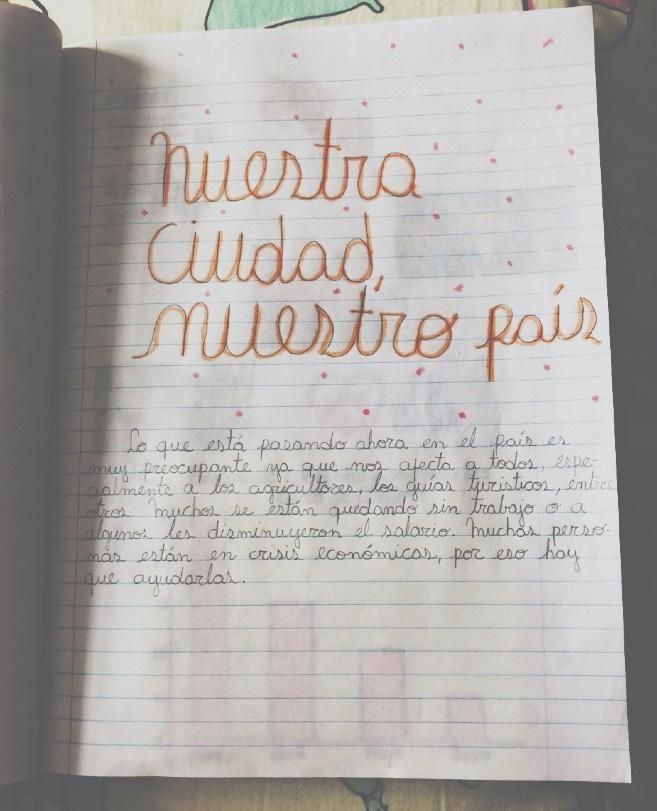 Nuestra
Ciudad,
nuestro país
Lo que está pasando ahora en el país es
muy preocupante ya que nos afecta a todos, espe-
cialmente a los agricultores, los guías turísticos, entre
otros. Muchos se están quedando sin trabajo o a
algunos les disminuyeron el salario. Muchas perso-
nas están en crisis económicas, por eso hay
que ayudarlas.